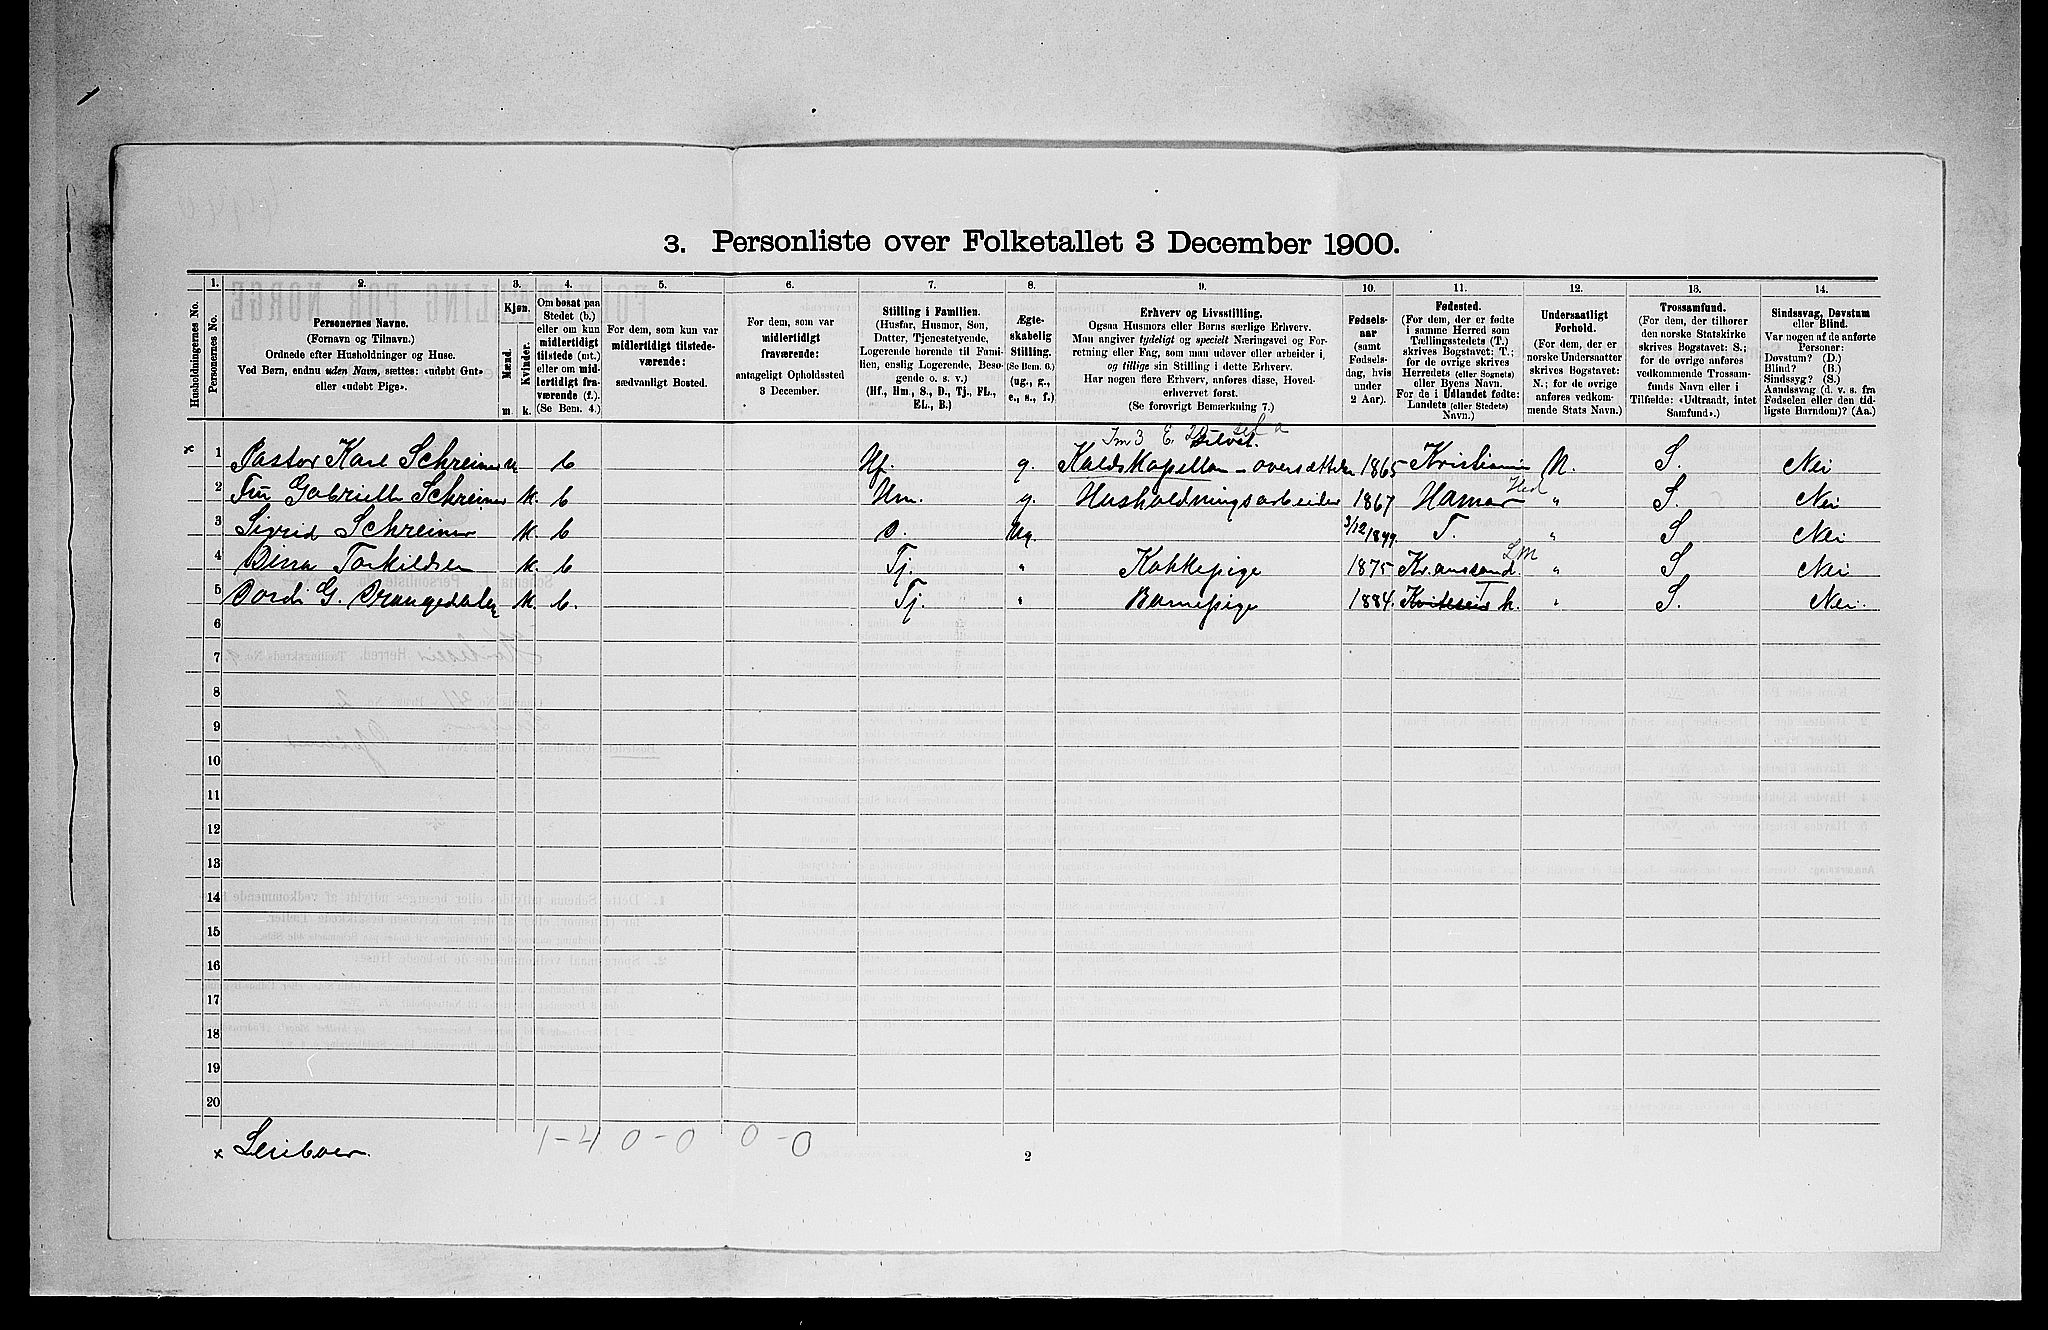 3. Personliste over Folketallet 3 December 1900.
Husholdningernes No.
1.
Personernes No.
2.
Personernes Navne.
(Fornavn og Tilnavn.)
Ordnede efter Husholdninger og Huse.
Ved Børn, endnu uden Navn, sættes: «udøbt Gut»
eller «udøbt Pige».
3.
Kjøn.
Mænd.
Kvinder.
m.
k.
4.
Om bosat paa
Stedet (b.)
eller om kun
midlertidigt
tilstede (mt.)
eller om mid-
lertidigt fra-
værende (f.).
(Se Bem. 4.)
5.
For dem, som kun var
midlertidigt tilstede-
værende:
sædvanligt Bosted.
6.
For dem, som var
midlertidigt
fraværende:
antageligt Opholdssted
3 December.
7.
Stilling i Familien.
(Husfar, Husmor, Søn,
Datter, Tjenestetyende,
Logerende hørende til Fami-
lien, enslig Logerende, Besø-
gende o. s. v.)
(Hf., Hm., S., D., Tj., FL.,
EL., B.)
8.
Ægte-
skabelig
Stilling.
(Se Bem. 6.)
(ug., g.,
e., s., f.)
9.
Erhverv og Livsstilling.
Ogsaa Husmors eller Børns særlige Erhverv.
Man angiver tydeligt og specielt Næringsvei og For-
retning eller Fag, som man udøver eller arbeider i,
og tillige sin Stilling i dette Erhverv.
Har nogen flere Erhverv, anføres disse, Hoved-
erhvervet først.
(Se forøvrigt Bemærkning 7.)
10.
Fødsels-
aar
(samt
Fødsels-
dag, hvis
under
2 Aar).
11.
Fødested.
(For dem, der er fødte
i samme Herred som
Tællingsstedets (T.)
skrives Bogstavet: T.;
for de øvrige skrives
Herredets (eller Sognets)
eller Byens Navn.
For de i Udlandet fødte:
Landets (eller Stedets)
Navn.)
12.
Undersaatligt
Forhold.
(For dem, der er
norske Undersaatter
skrives Bogstavet:
N.; for de øvrige
anføres vedkom-
mende Stats Navn.)
13.
Trossamfund.
(For dem, der tilhører
den norske Statskirke
skrives Bogstavet: S.;
for de øvrige anføres
vedkommende Trossam-
funds Navn eller i
Tilfælde: «Udtraadt, intet
Samfund».)
14.
Sindssvag, Døvstum
eller Blind.
Var nogen af de anførte
Personer:
Døvstum? (D.)
Blind? (B.)
Sindssyg? (S.)
Aandssvag (d. v. s. fra
Fødselen eller den tid-
ligste Barndom)? (Aa.)
x 1 Pastor Karl Schreiner M b Hf. g. Kaldskapellan - oversætter 1865 Kristiania N. S. Nei
2 Fru Gabrielle Schreiner K. b Hm. g. Husholdningsarbeider 1867 Hamar Hed " S. Nei
3 Sigrid Schreiner K. b D. Ug. 3/12 1899. T. " S Nei
4 Dina Torkildsen K. b Tj. " Kokkepige 1875 Kr.ansand. LM " S Nei
5 Bordi G. Drangedalen K. b. Tj. " Barnepige 1884. Kviteseid T " S. Nei.
6
7
8
9
10
11
12
13
14
15
16
17
18
19
20
x Leiboer.
1-4 0-0 0-0
2